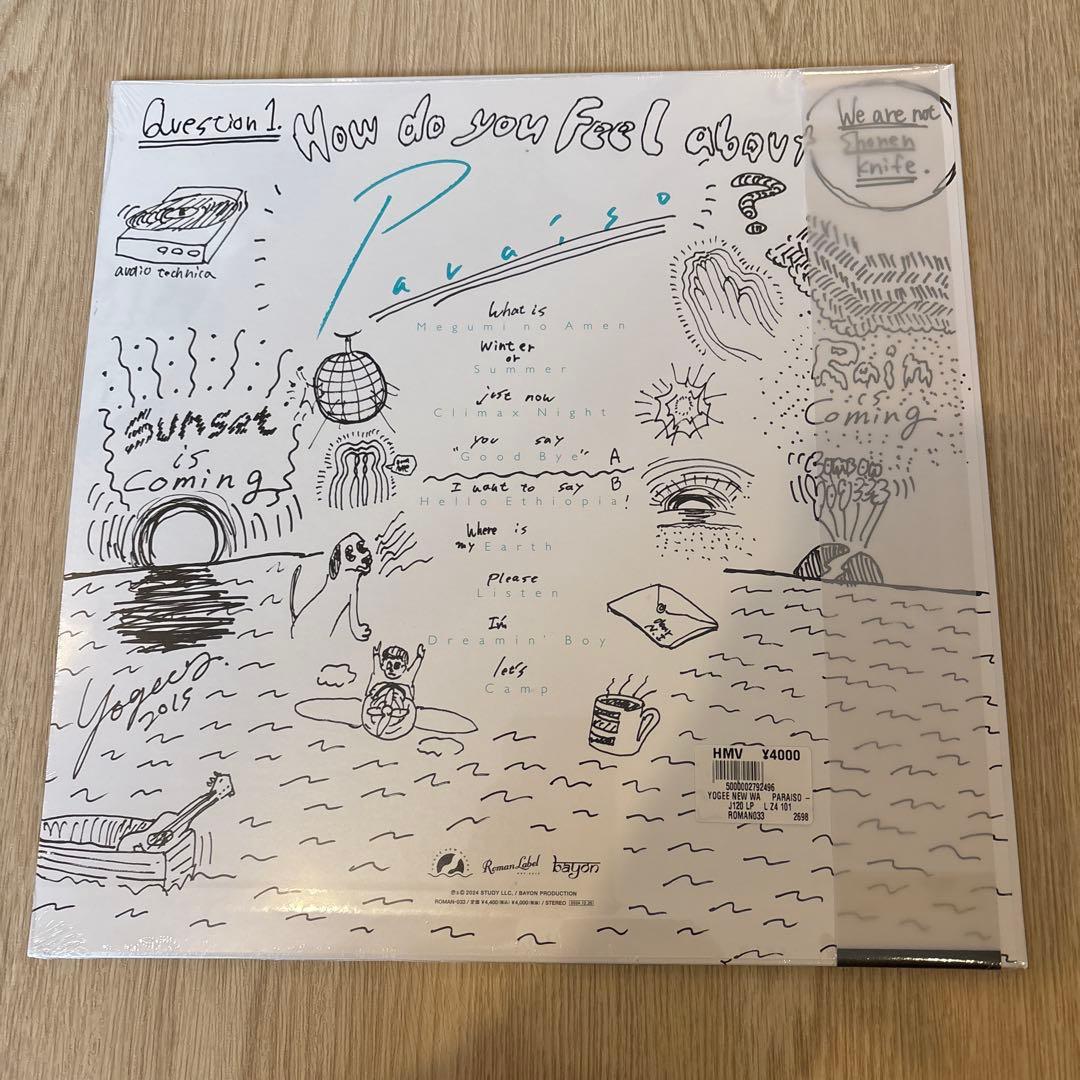 Question 1. How do you Feel about
Paraiso
?
We are not
Shonen
Knife.
audio technica
What is
Megumi no Amen
Winter
or
Summer
just now
Climax Night
you say
"Good Bye" A
B
I want to say
Hello Ethiopia!
Where is
my Earth
Please
Listen
I'm
Dreamin' Boy
let's
Camp
SUNSET
is
Coming
Rain
is
Coming
Yogee's.
2015
HMV ¥4000
5000002792496
YOGEE NEW WA PARAISO -
J120 LP L Z4 101
ROMAN033 2698
Roman Label
bayon
℗&© 2024 STUDY LLC. / BAYON PRODUCTION
ROMAN-033 / 定価 ¥4,400(税込) ¥4,000(税抜) / STEREO